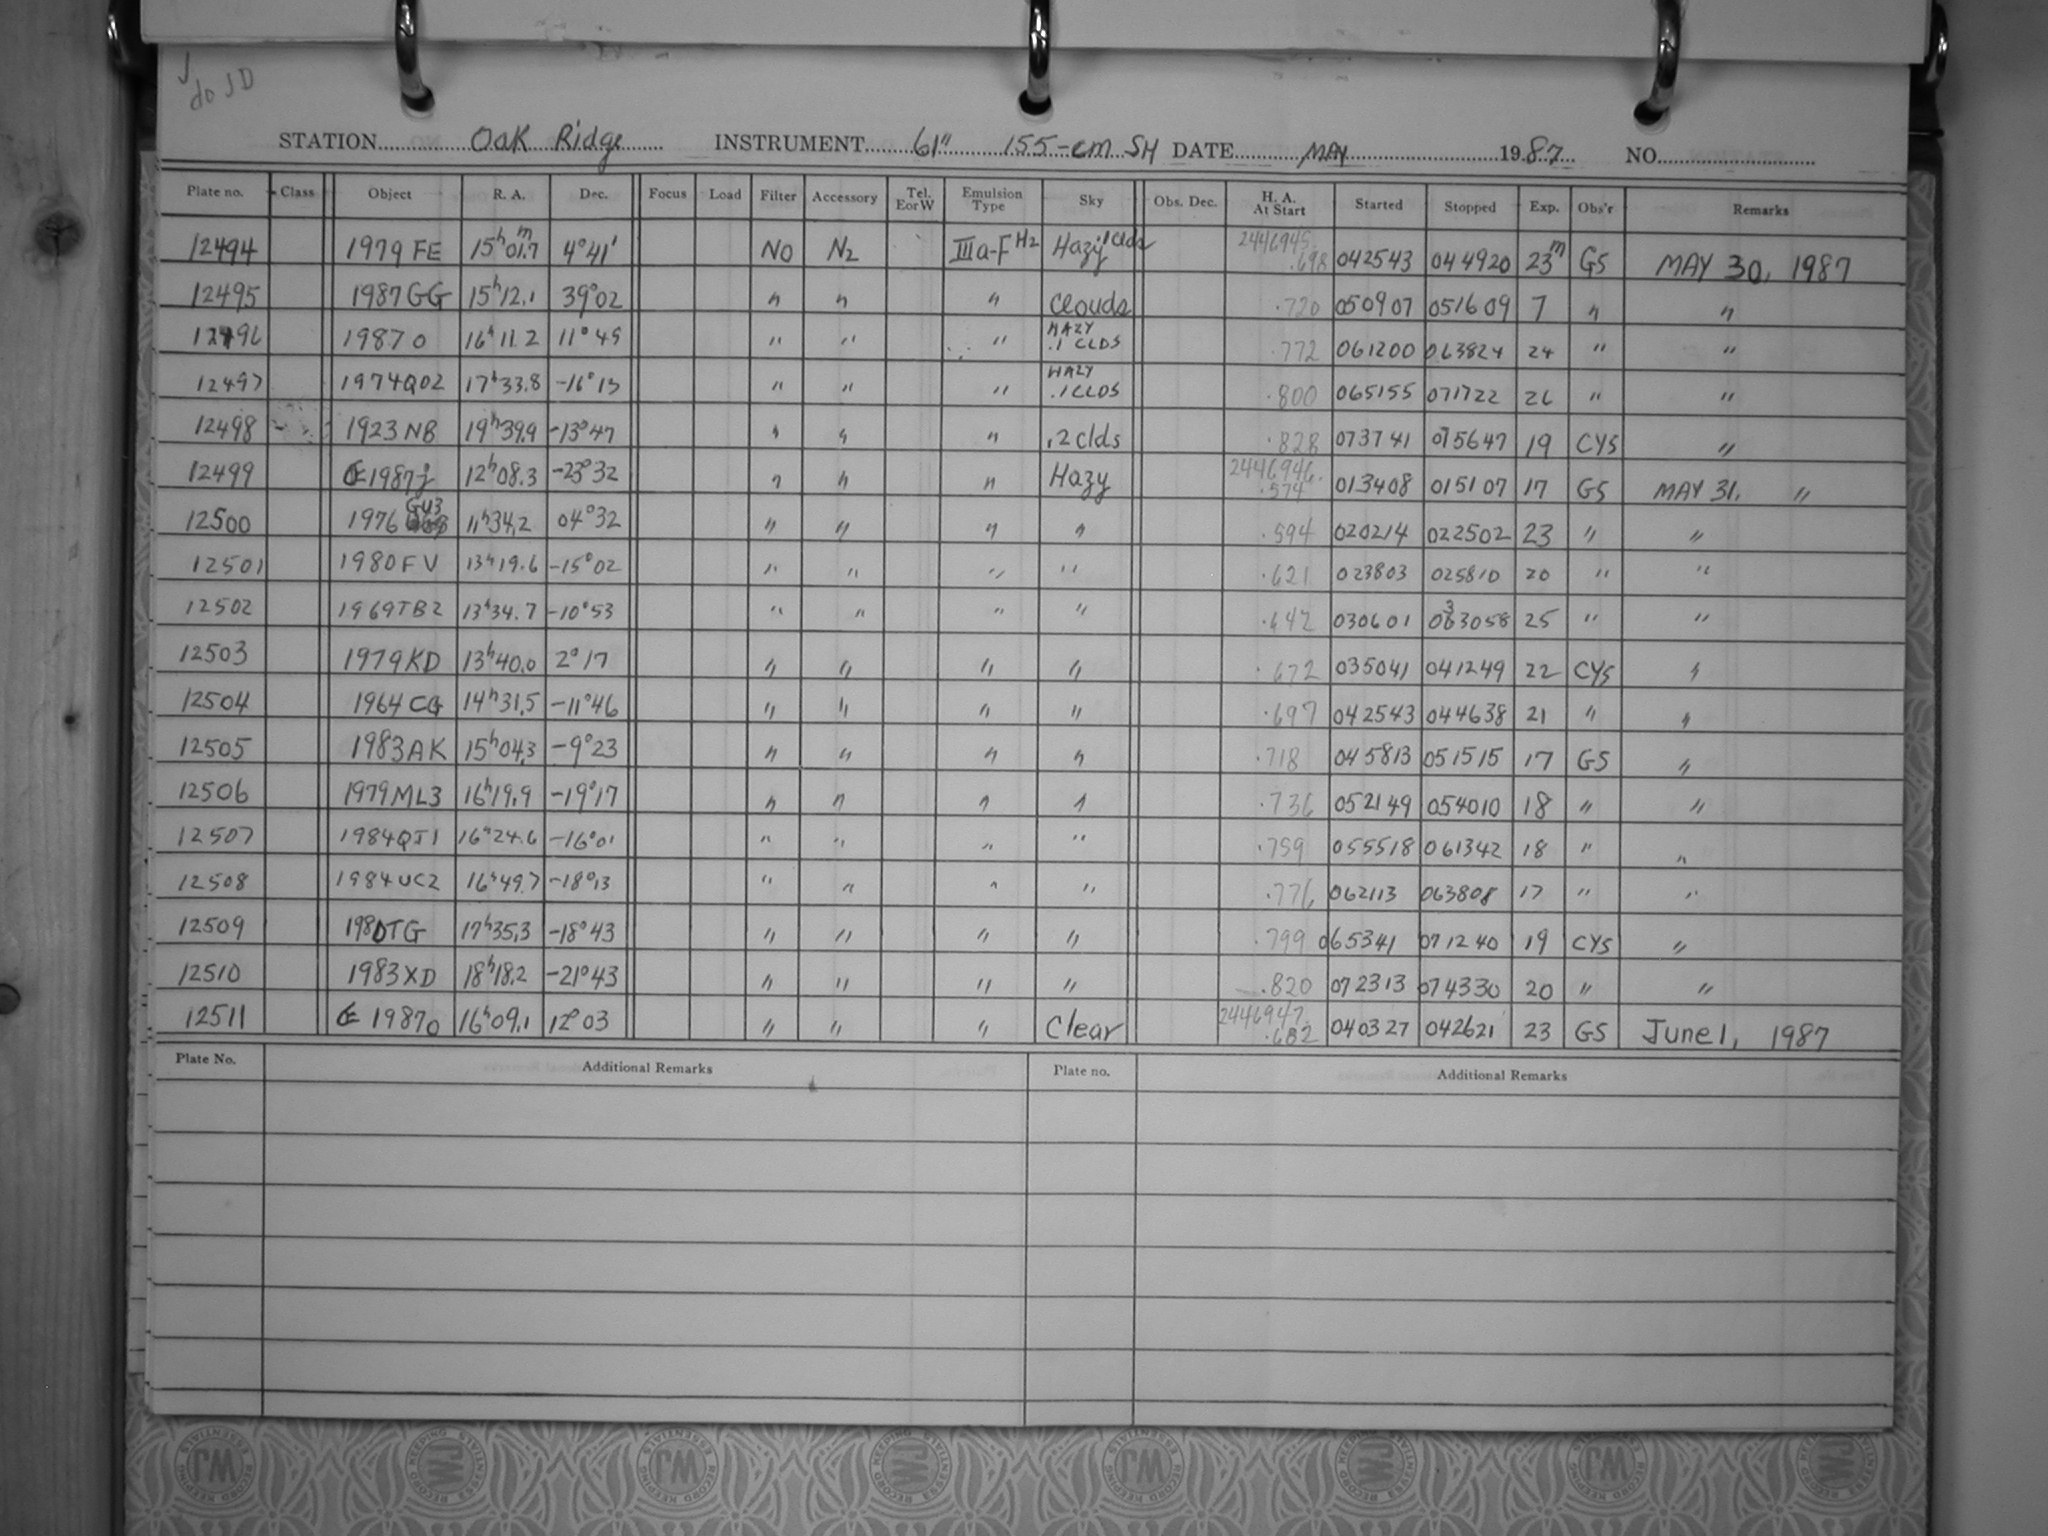 J
do JD
STATION Oak Ridge INSTRUMENT 61" 155-cm SH DATE MAY 1987 NO.
Plate no. Class Object R. A. Dec. Focus Load Filter Accessory Tel. E or W Emulsion Type Sky Obs. Dec. H. A. At Start Started Stopped Exp. Obs'r Remarks
12494 1979 FE 15h 01.7m 4°41' NO N2 IIIa-F H2 Hazy .1 Clds 2446945. .698 042543 044920 23m GS MAY 30, 1987
12495 1987 GG 15h12.1 39°02 " " " Clouds .720 050907 051609 7 " "
12496 1987 o 16h11.2 11°45 " " " HAZY .1 CLDS .772 061200 063824 24 " "
12497 1974QO2 17h33.8 -16°13 " " " HAZY .1 CLDS .800 065155 071722 26 " "
12498 1923 NB 19h39.9 -13°47 " " " .2 clds .828 073741 075647 19 CYS "
12499 1987j 12h08.3 -23°32 " " " Hazy 2446946. .574 013408 015107 17 GS MAY 31, "
12500 1976 GU3 11h34.2 04°32 " " " " .594 020214 022502 23 " "
12501 1980FV 13h19.6 -15°02 " " " " .621 023803 025810 20 " "
12502 1969TB2 13h34.7 -10°53 " " " " .642 030601 033058 25 " "
12503 1979KD 13h40.0 2°17 " " " " .672 035041 041249 22 CYS "
12504 1964 CG 14h31.5 -11°46 " " " " .697 042543 044638 21 " "
12505 1983AK 15h04.3 -9°23 " " " " .718 045813 051515 17 GS "
12506 1979ML3 16h19.9 -19°17 " " " " .736 052149 054010 18 " "
12507 1984QJ1 16h24.6 -16°01 " " " " .759 055518 061342 18 " "
12508 1984UC2 16h49.7 -18°13 " " " " .776 062113 063808 17 " "
12509 1980TG 17h35.3 -18°43 " " " " .799 065341 071240 19 CYS "
12510 1983XD 18h18.2 -21°43 " " " " .820 072313 074330 20 " "
12511 1987o 16h09.1 12°03 " " " Clear 2446947. .682 040327 042621 23 GS June 1, 1987
Plate No. Additional Remarks Plate no. Additional Remarks